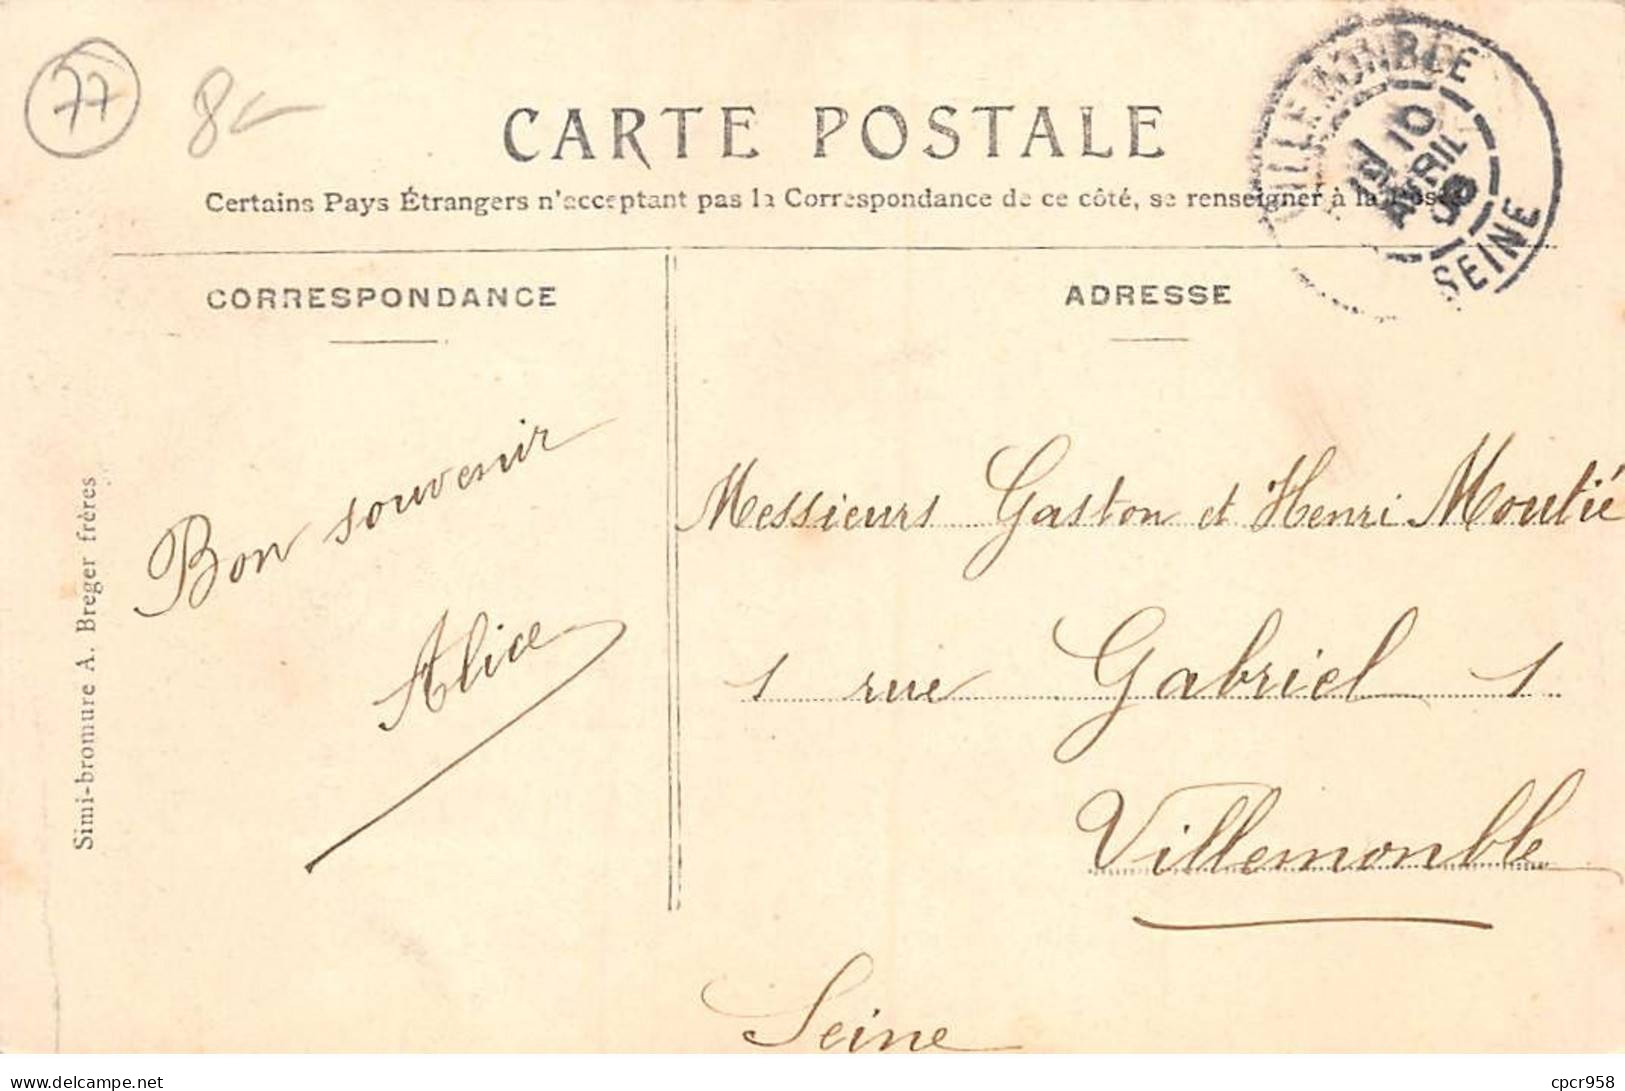 77
8
CARTE POSTALE
Certains Pays Étrangers n'acceptent pas la Correspondance de ce côté, se renseigner à la Poste
VILLEMONBLE
10
AVRIL
08
SEINE
CORRESPONDANCE
ADRESSE
Bon souvenir
Alice
Messieurs Gaston et Henri Moutié
1 rue Gabriel 1
Villemonble
Seine
Simi-bromure A. Breger frères
www.delcampe.net
cpcr958